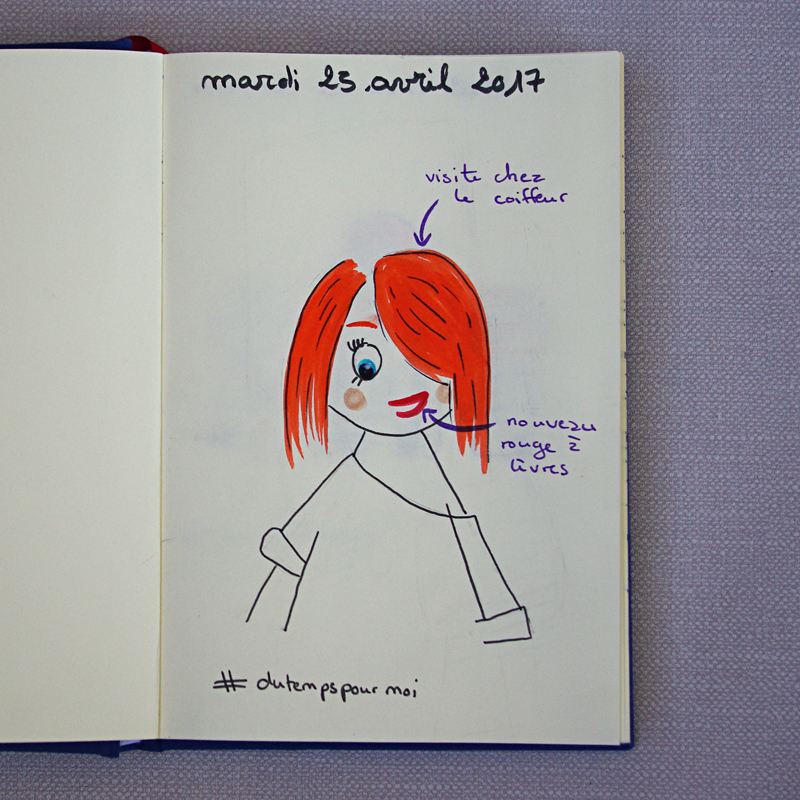 mardi 25 avril 2017
visite chez
le coiffeur
nouveau
rouge à
lèvres
# dutempspour moi